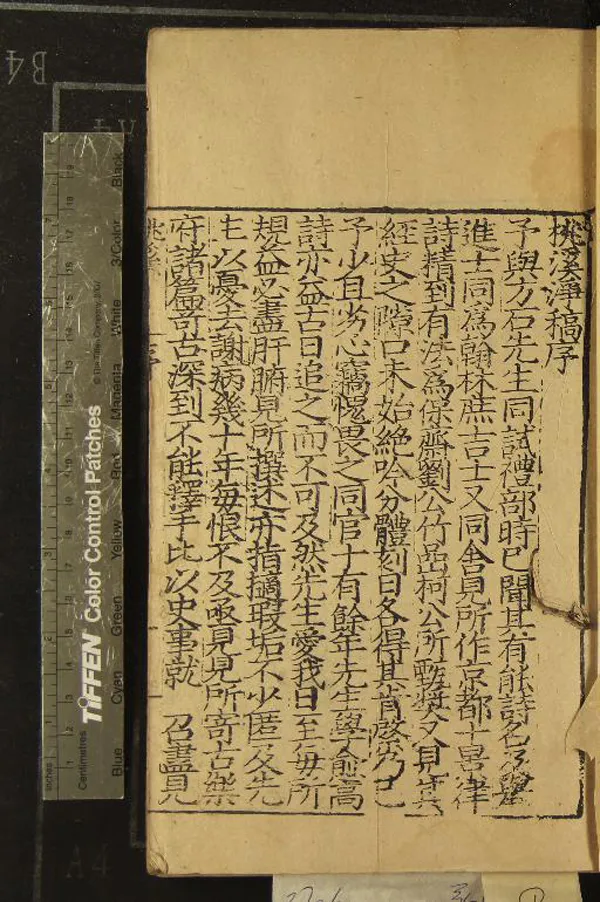 桃溪淨稿序
予與方石先生同試禮部時已聞其有能詩名及舉
進士同爲翰林庶吉士又同舍見所作京都十景律
詩精到有法爲保齋劉公竹岩柯公所甄奬又見其
經史之隙口未始絶吟分體刻日各得其肯綮乃已
予少且劣心竊愧畏之同官十有餘年先生學愈富
詩亦益古日追之而不可及然先生愛我日至每所
規益必盡肝腑見所撰述亦指摘瑕垢不少匿及先
生以憂去謝病幾十年每恨不及亟見見所寄古樂
府諸篇奇古深到不能釋手比以史事就 召盡見
桃溪 序 一
TIFFEN Color Control Patches
© The Tiffen Company, 2007
Centimetres
Inches
Blue Cyan Green Yellow Red Magenta White 3/Color Black
B4
A4
A4